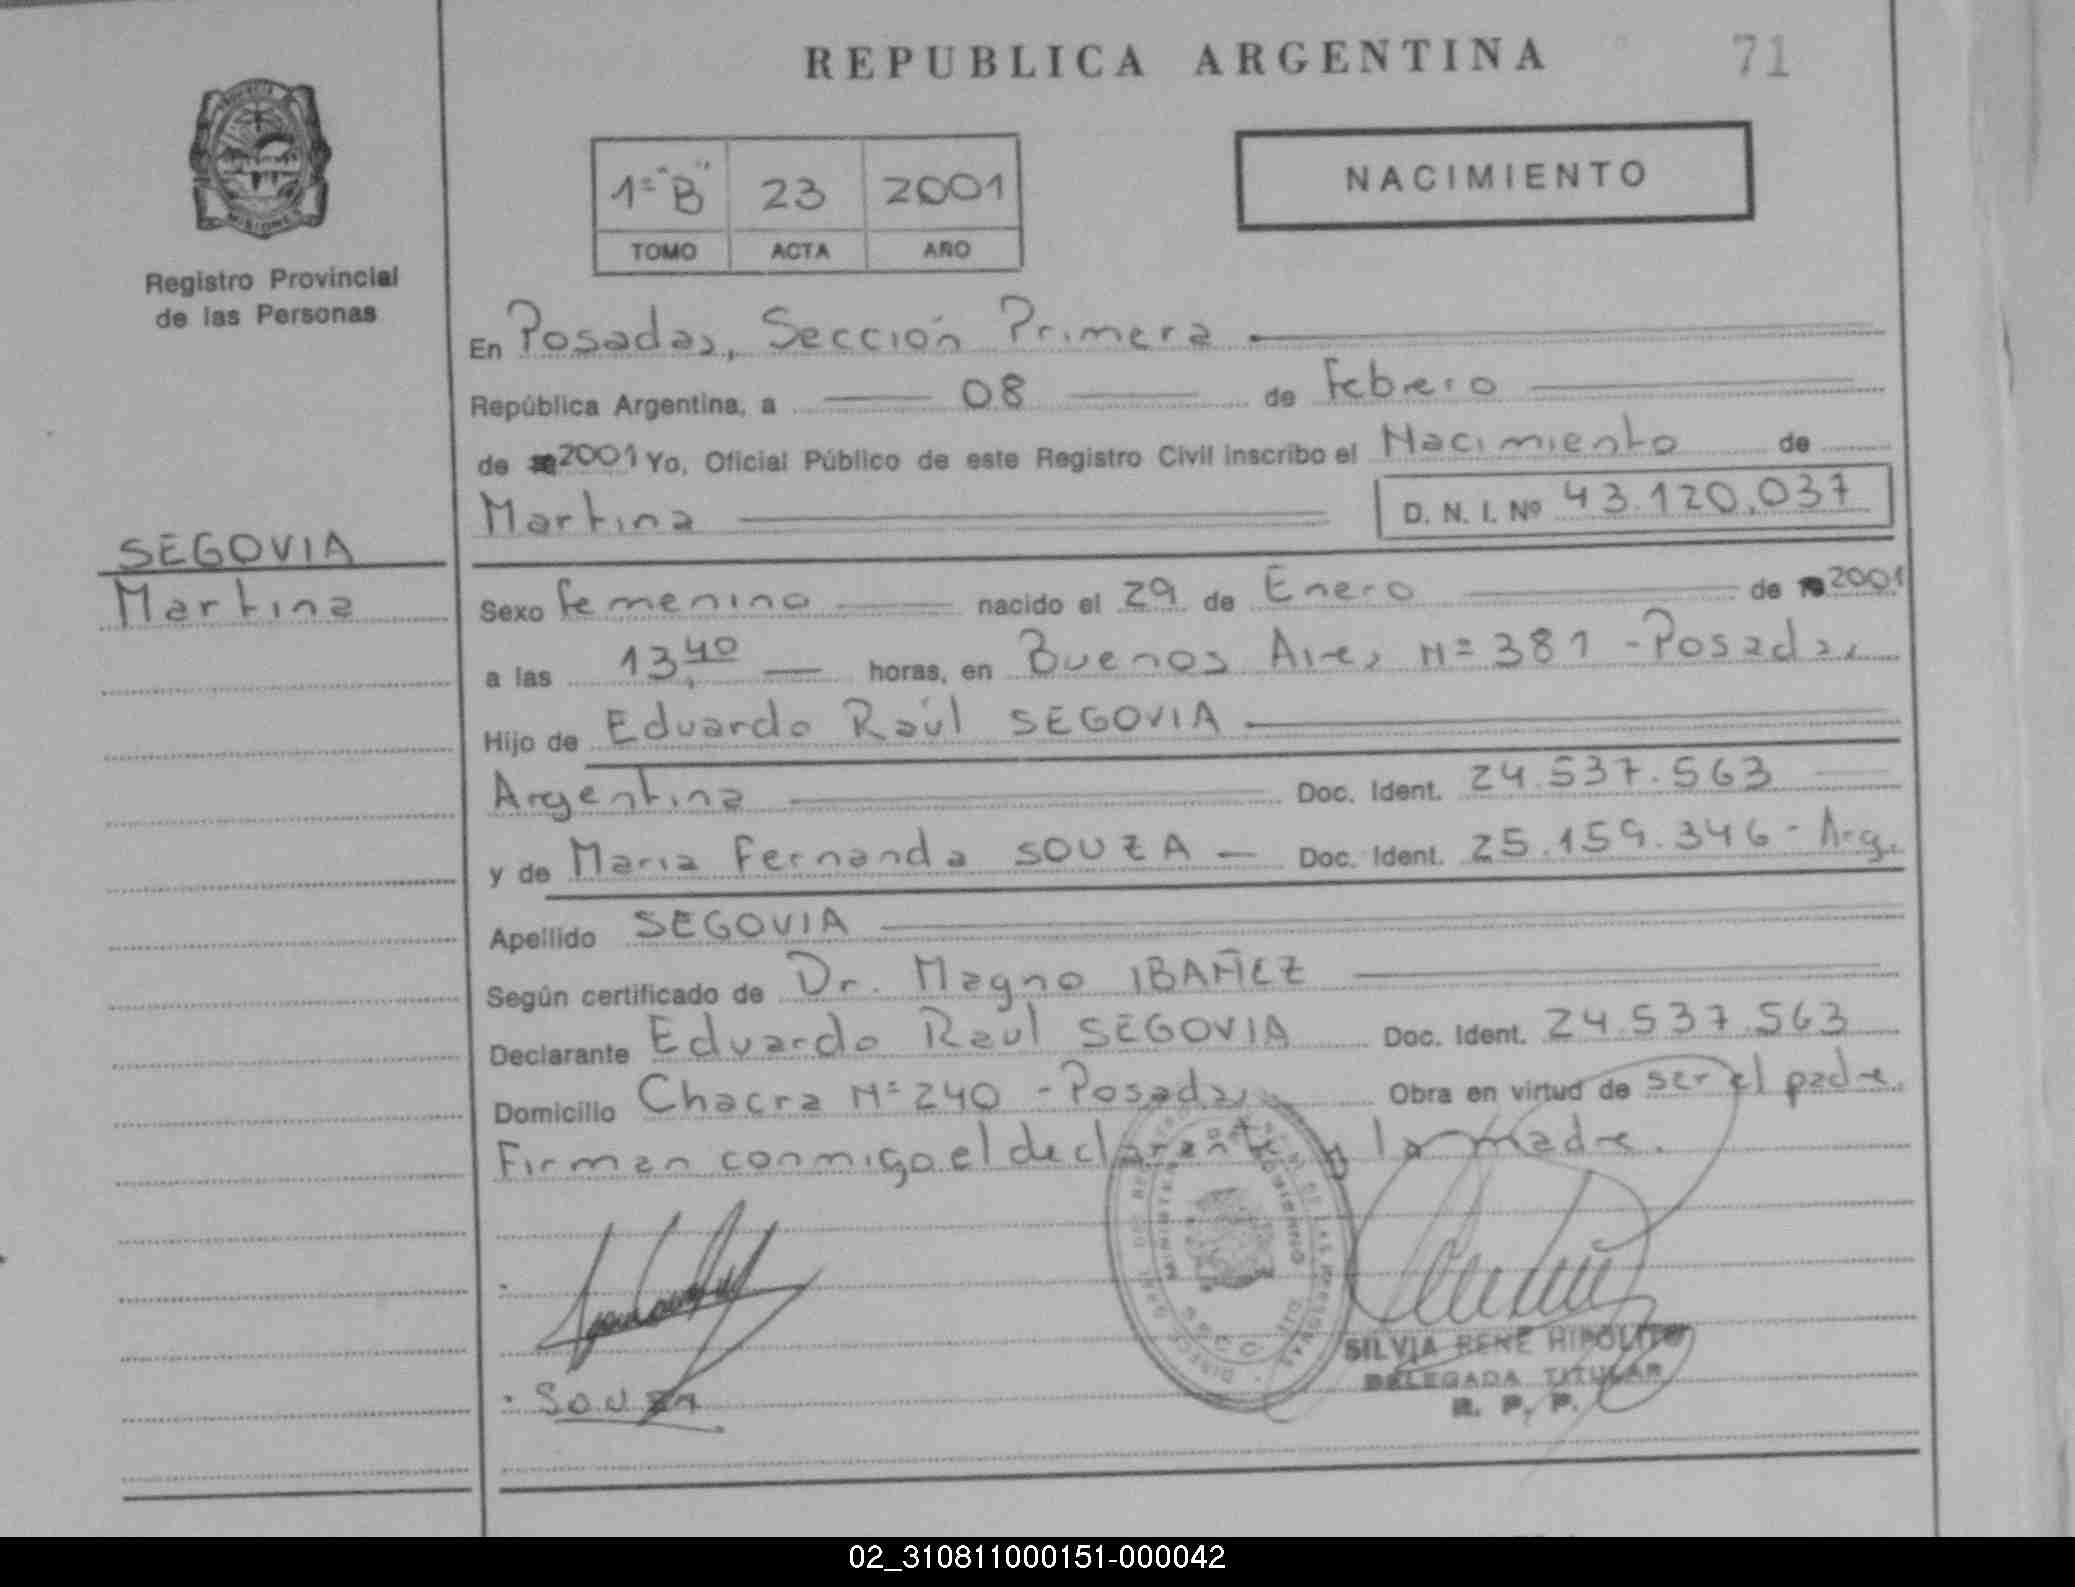 REPUBLICA ARGENTINA 71
Registro Provincial
de las Personas
1= "B" 23 2001
TOMO ACTA AÑO
NACIMIENTO
En Posadas, Sección Primera
República Argentina, a 08 de Febrero
de 2001 Yo, Oficial Público de este Registro Civil inscribo el Nacimiento de
Martina D. N. I. Nº 43.120.037
SEGOVIA
Martina
Sexo femenino nacido el 29 de Enero de 2001
a las 13,40 horas, en Buenos Aires Nº 381 - Posadas
Hijo de Eduardo Raúl SEGOVIA
Argentina Doc. Ident. 24.537.563
y de Maria Fernanda SOUZA — Doc. Ident. 25.159.346 - Arg.
Apellido SEGOVIA
Según certificado de Dr. Magno IBAÑEZ
Declarante Eduardo Raul SEGOVIA Doc. Ident. 24.537.563
Domicilio Chacra Nº 240 - Posadas Obra en virtud de ser el padre
Firman conmigo el declarante y la madre.
SOUZA
SILVIA RENE HIPOLITO
DELEGADA TITULAR
R. P. P.
02_310811000151-000042